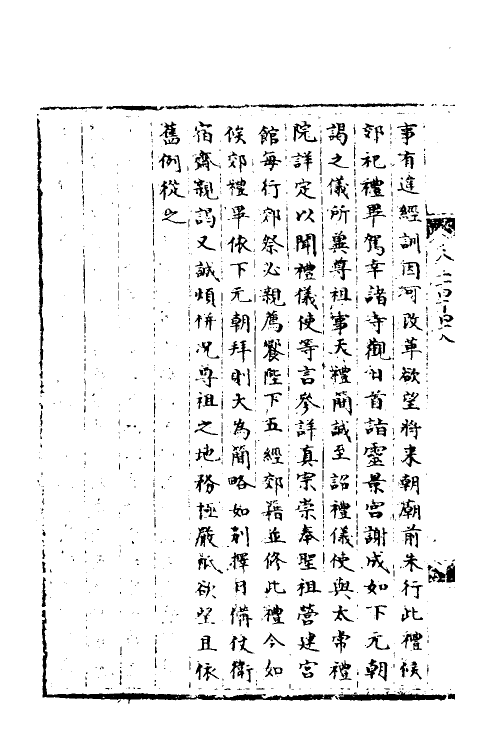 事有違經訓因何改革欲望將来朝廟前未行此禮候
郊祀禮畢駕幸諸寺觀日首詣靈景宫謝成如下元朝
謁之儀所兾尊祖事天禮簡誠至詔禮儀使與太常禮
院詳定以聞禮儀使等言參詳真宗崇奉聖祖營建宫
館每行郊祭必親薦饗陛下五經郊籍並修此禮今如
俟郊禮畢依下元朝拜則大為簡略如别擇日備仗衛
宿齋親謁又誠煩併况尊祖之地務極嚴祇欲望且依
舊例從之